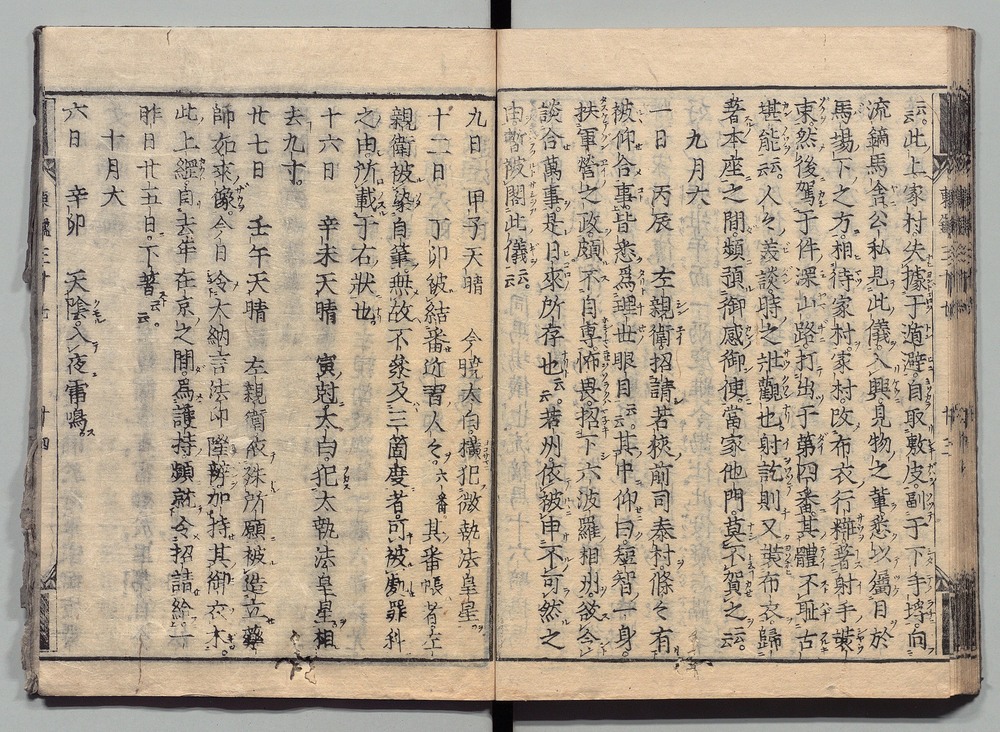 云此上家村失據于遁避自取敷皮副于下手埒向
流鏑馬舎公私見此儀入興見物之輩悉以屬目於
馬塲下之方相待家村家村改布衣行縢著射手裝
束然後駕于件深山路打出于第四番其體不耻古
堪能云人々美談時之壯觀也射訖則又裝布衣歸
著本座之間頻預御感御使當家他門莫不賀之云
九月六
一日 丙辰 左親衛招請若狹前司泰村條々有
被仰合事皆悉爲理世眼目云其中仰曰短智一身
扶軍營之政頗不自專怖畏招下六波羅相州欲令
談合萬事是日來所存也云若州依被申不可然之
由暫被閣此儀云云
九日 甲子天晴 今曉太白犯微執法皇星
十二日 丁卯被結番近習人々六番其番帳者左
親衛被染自筆無故不參及三箇度者可被處罪科
之由所載于右狀也
十六日 辛未天晴 寅尅太白犯太執法皇星相
去九寸
廿七日 壬午天晴 左親衛依殊所願被造立藥
師如來像今日令大納言法印隆辨加持其御衣木
此上綱自去年在京之間爲護持頻就令招請給一
昨日廿五日下著云云
十月大
六日 辛卯 天陰入夜雷鳴
東鑑三十五
廿四